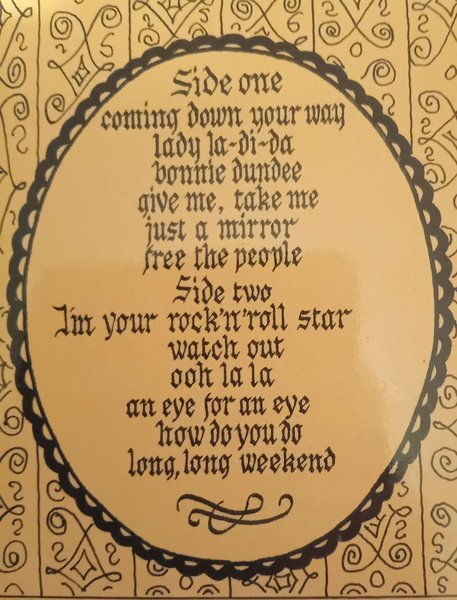 Side one
coming down your way
lady la-di-da
bonnie dundee
give me, take me
just a mirror
free the people
Side two
I'm your rock'n'roll star
watch out
ooh la la
an eye for an eye
how do you do
long, long weekend